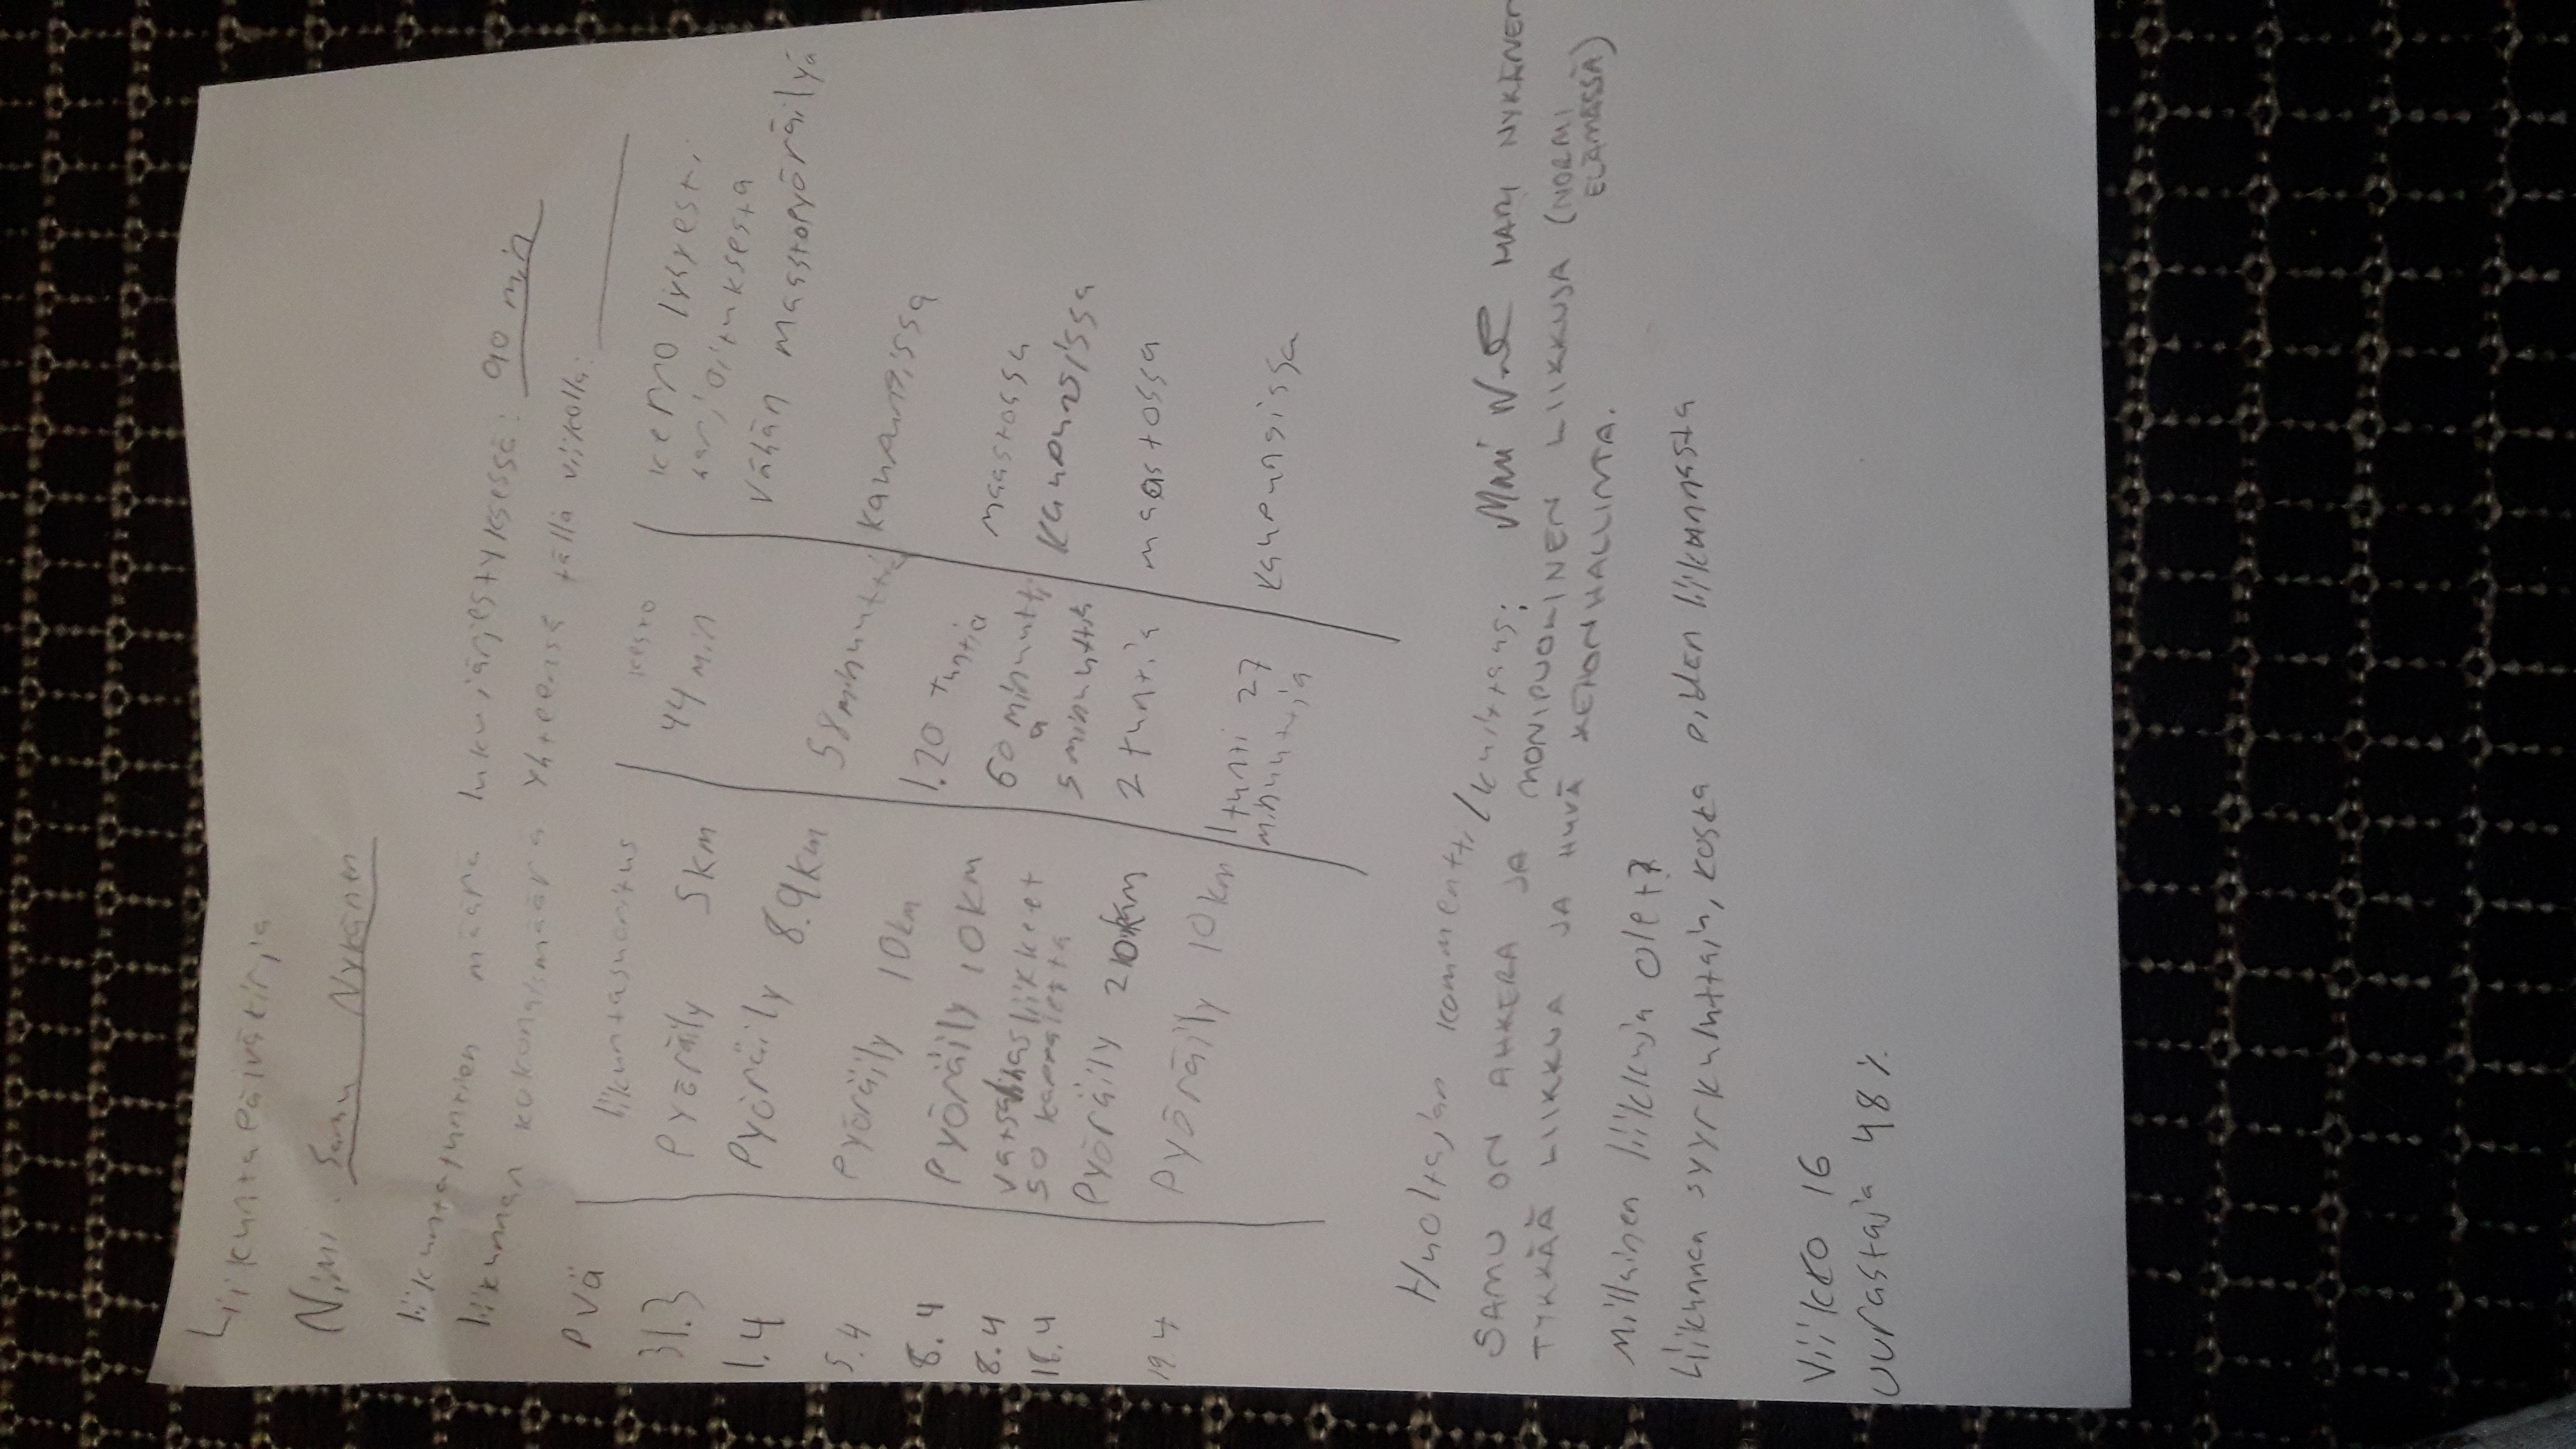 Liikuntapäiväkirja
Nimi: Samu Nykänen
liikuntatuntien määrä lukujärjestyksessä: 90 min
liikunnan kokonaismäärä yhteensä tällä viikolla:
pvä liikuntasuoritus kesto kerro lyhyesti
harjoituksesta
31.3 Pyöräily 5km 44 min vähän maastopyöräilyä
1.4 Pyöräily 8.9km 58 minuuttia kaupunissa
5.4 Pyöräily 10km 1.20 tuntia maastossa
8.4 Pyöräily 10km 60 minuuttia kaupunissa
8.4 vatsalihasliikkeet 5 minuuttia
50 kappaletta
18.4 Pyöräily 20km 2 tuntia maastossa
19.4 Pyöräily 10km 1 tunti 27 minuuttia kaupungissa
Huoltajan kommentti/kuittaus: MARI NYKÄNEN
SAMU ON AHKERA JA MONIPUOLINEN LIIKKUJA (NORMI ELÄMÄSSÄ)
TYKKÄÄ LIIKKUA JA HYVÄ KEHONHALLINTA.
Millainen liikkuja olet?
Liikunnan syyrkuluttain, koska pidän liikunnasta
Viikko 16
uurastaja 48%